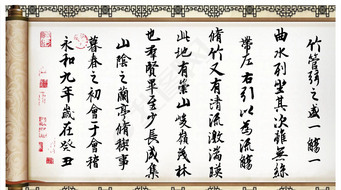 永和九年歲在癸丑
暮春之初會于會稽
山陰之蘭亭脩禊事
也羣賢畢至少長咸集
此地有崇山峻嶺茂林
脩竹又有清流激湍暎
帶左右引以為流觴
曲水列坐其次雖無絲
竹管弦之盛一觴一